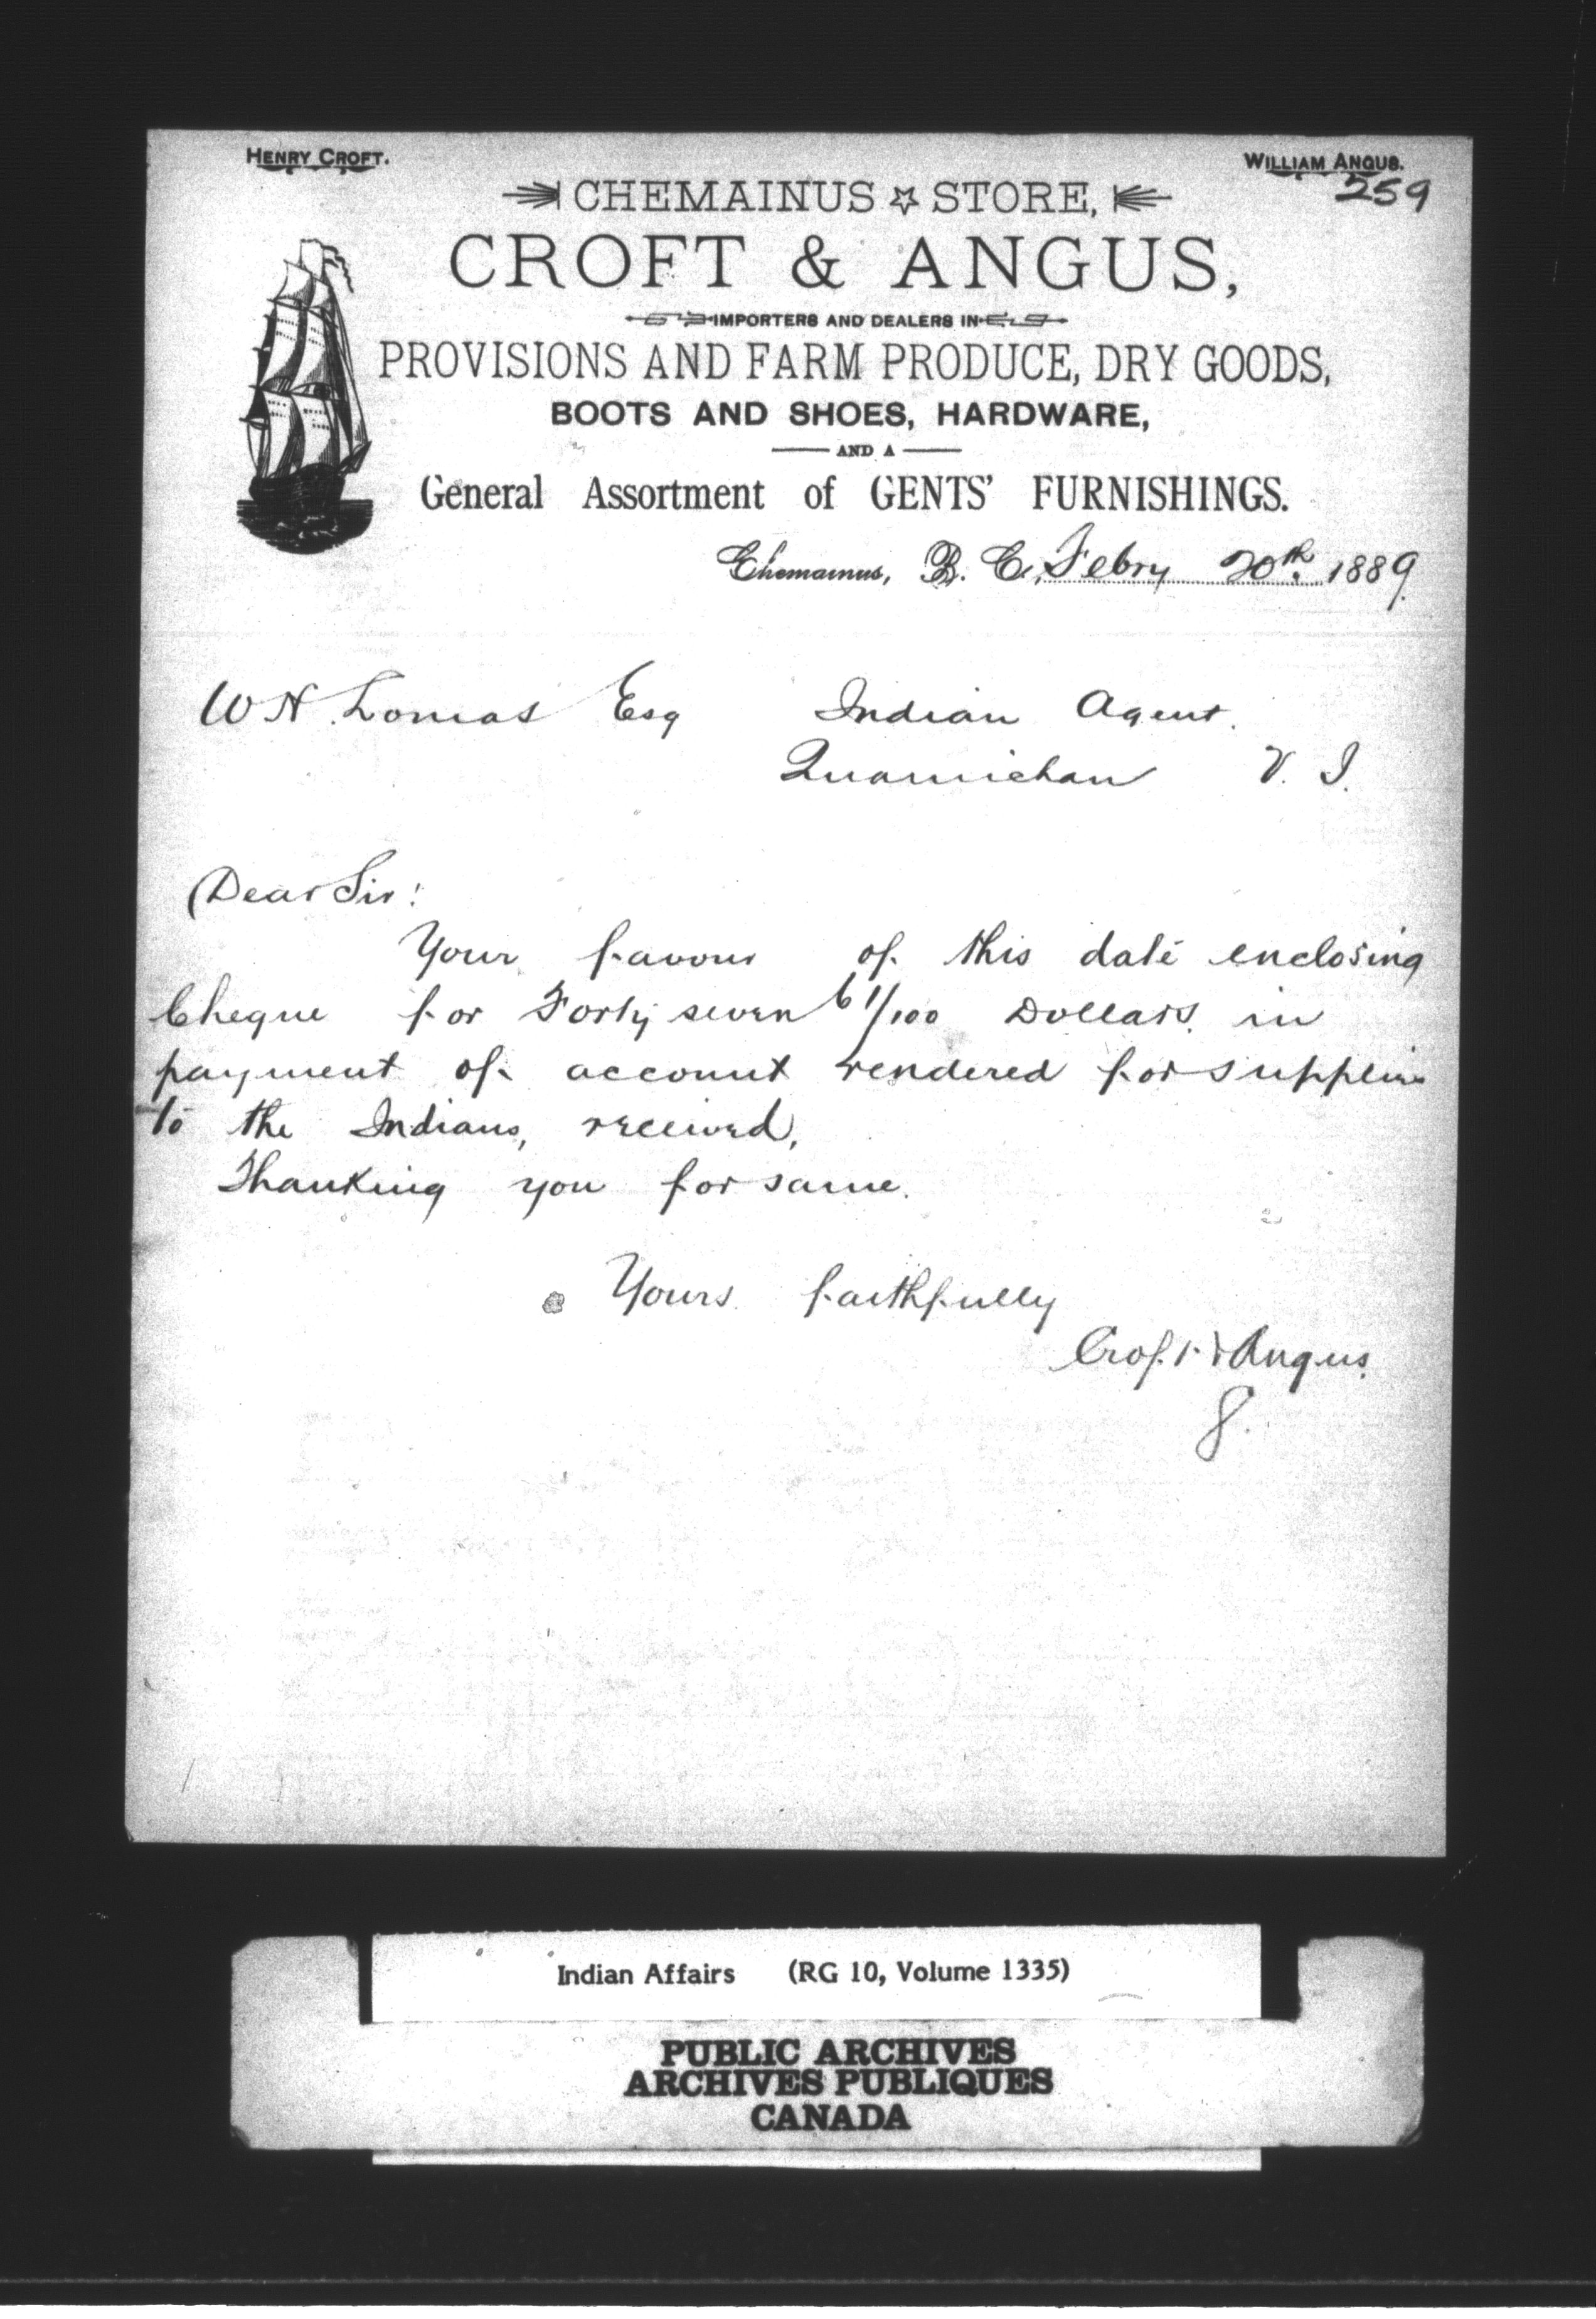 HENRY CROFT.
WILLIAM ANGUS.
259
CHEMAINUS STORE,
CROFT & ANGUS,
IMPORTERS AND DEALERS IN
PROVISIONS AND FARM PRODUCE, DRY GOODS,
BOOTS AND SHOES, HARDWARE,
AND A
General Assortment of GENTS' FURNISHINGS.
Chemainus, B. C., Febry 20th 1889.
W H Lomas Esq Indian Agent.
Quamichan V. I.
Dear Sir:
Your favour of this date enclosing
Cheque for Forty seven 61/100 Dollars in
payment of account rendered for supplies
to the Indians, received,
Thanking you for same.
Yours faithfully
Croft & Angus.
Indian Affairs (RG 10, Volume 1335)
PUBLIC ARCHIVES
ARCHIVES PUBLIQUES
CANADA